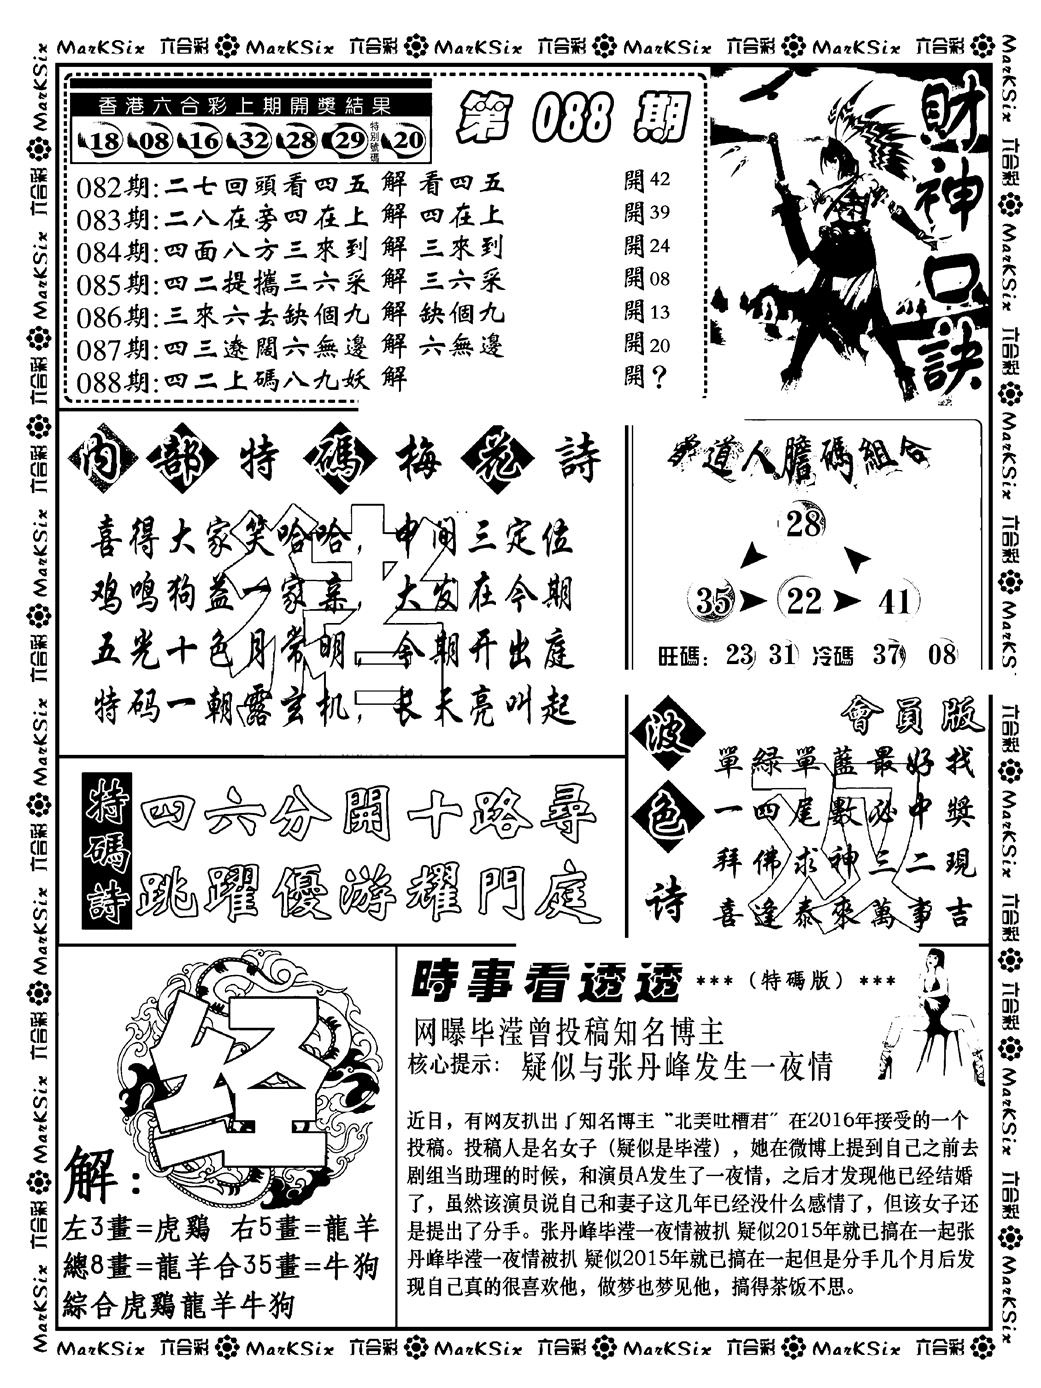 MarKSix 六合彩 MarKSix 六合彩 MarKSix 六合彩 MarKSix 六合彩 MarKSix 六合彩
香港六合彩上期開獎結果
18 08 16 32 28 29 特別號碼 20
第 088 期
082期:二七回頭看四五 解 看四五 開42
083期:二八在旁四在上 解 四在上 開39
084期:四面八方三來到 解 三來到 開24
085期:四二提攜三六采 解 三六采 開08
086期:三來六去缺個九 解 缺個九 開13
087期:四三遼闊六無邊 解 六無邊 開20
088期:四二上碼八九妖 解 開?
財神口訣
内部特碼梅花詩
喜得大家笑哈哈，中间三定位
鸡鸣狗盖一家亲，大发在今期
五光十色月常明，今期开出庭
特码一朝露玄机，长天亮叫起
道人膽碼組合
28
35 22 41
旺碼: 23 31 冷碼 37 08
波色诗
會員版
單緑單藍最好找
一四尾數必中獎
拜佛求神三二現
喜逢泰來萬事吉
特碼詩
四六分開十路尋
跳躍優游耀門庭
解:
左3畫=虎鷄 右5畫=龍羊
總8畫=龍羊合35畫=牛狗
綜合虎鷄龍羊牛狗
時事看透透 ***（特碼版）***
网曝毕滢曾投稿知名博主
核心提示: 疑似与张丹峰发生一夜情
近日，有网友扒出了知名博主“北美吐槽君”在2016年接受的一个
投稿。投稿人是名女子（疑似是毕滢），她在微博上提到自己之前去
剧组当助理的时候，和演员A发生了一夜情，之后才发现他已经结婚
了，虽然该演员说自己和妻子这几年已经没什么感情了，但该女子还
是提出了分手。张丹峰毕滢一夜情被扒 疑似2015年就已搞在一起张
丹峰毕滢一夜情被扒 疑似2015年就已搞在一起但是分手几个月后发
现自己真的很喜欢他，做梦也梦见他，搞得茶饭不思。
MarKSix 六合彩 MarKSix 六合彩 MarKSix 六合彩 MarKSix 六合彩 MarKSix 六合彩